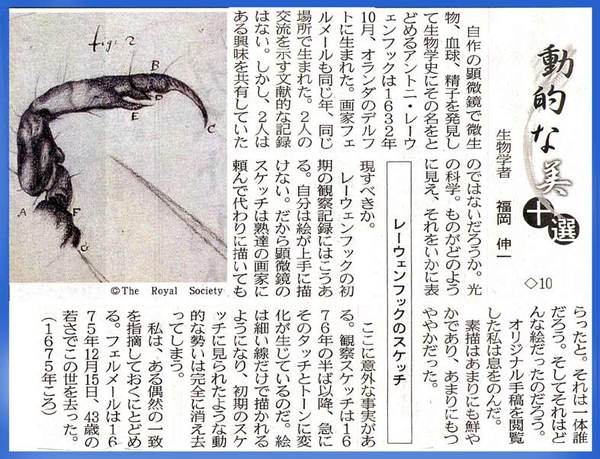 動的な美
十選
生物学者 福岡 伸一
◇10
自作の顕微鏡で微生
物、血球、精子を発見し
て生物学史にその名をと
どめるアントニ・レーウ
ェンフックは1632年
10月、オランダのデルフ
トに生まれた。画家フェ
ルメールも同じ年、同じ
場所で生まれた。2人の
交流を示す文献的な記録
はない。しかし、2人は
ある興味を共有していた
のではないだろうか。光
の科学。ものがどのよう
に見え、それをいかに表
現すべきか。
レーウェンフックの初
期の観察記録にはこうあ
る。自分は絵が上手に描
けない。だから顕微鏡の
スケッチは熟達の画家に
頼んで代わりに描いても
らったと。それは一体誰
だろう。そしてそれはど
んな絵だったのだろう。
オリジナル手稿を閲覧
した私は息をのんだ。
素描はあまりにも鮮や
かであり、あまりにもつ
ややかだった。
ここに意外な事実があ
る。観察スケッチは16
76年の半ば以降、急に
そのタッチとトーンに変
化が生じているのだ。絵
は細い線だけで描かれる
ようになり、初期のスケ
ッチに見られたような動
的な勢いは完全に消え去
ってしまう。
私は、ある偶然の一致
を指摘しておくにとどめ
る。フェルメールは16
75年12月15日、43歳の
若さでこの世を去った。
(1675年ころ)
レーウェンフックのスケッチ
fig: 2
B
D
E
C
A
F
G
©The Royal Society